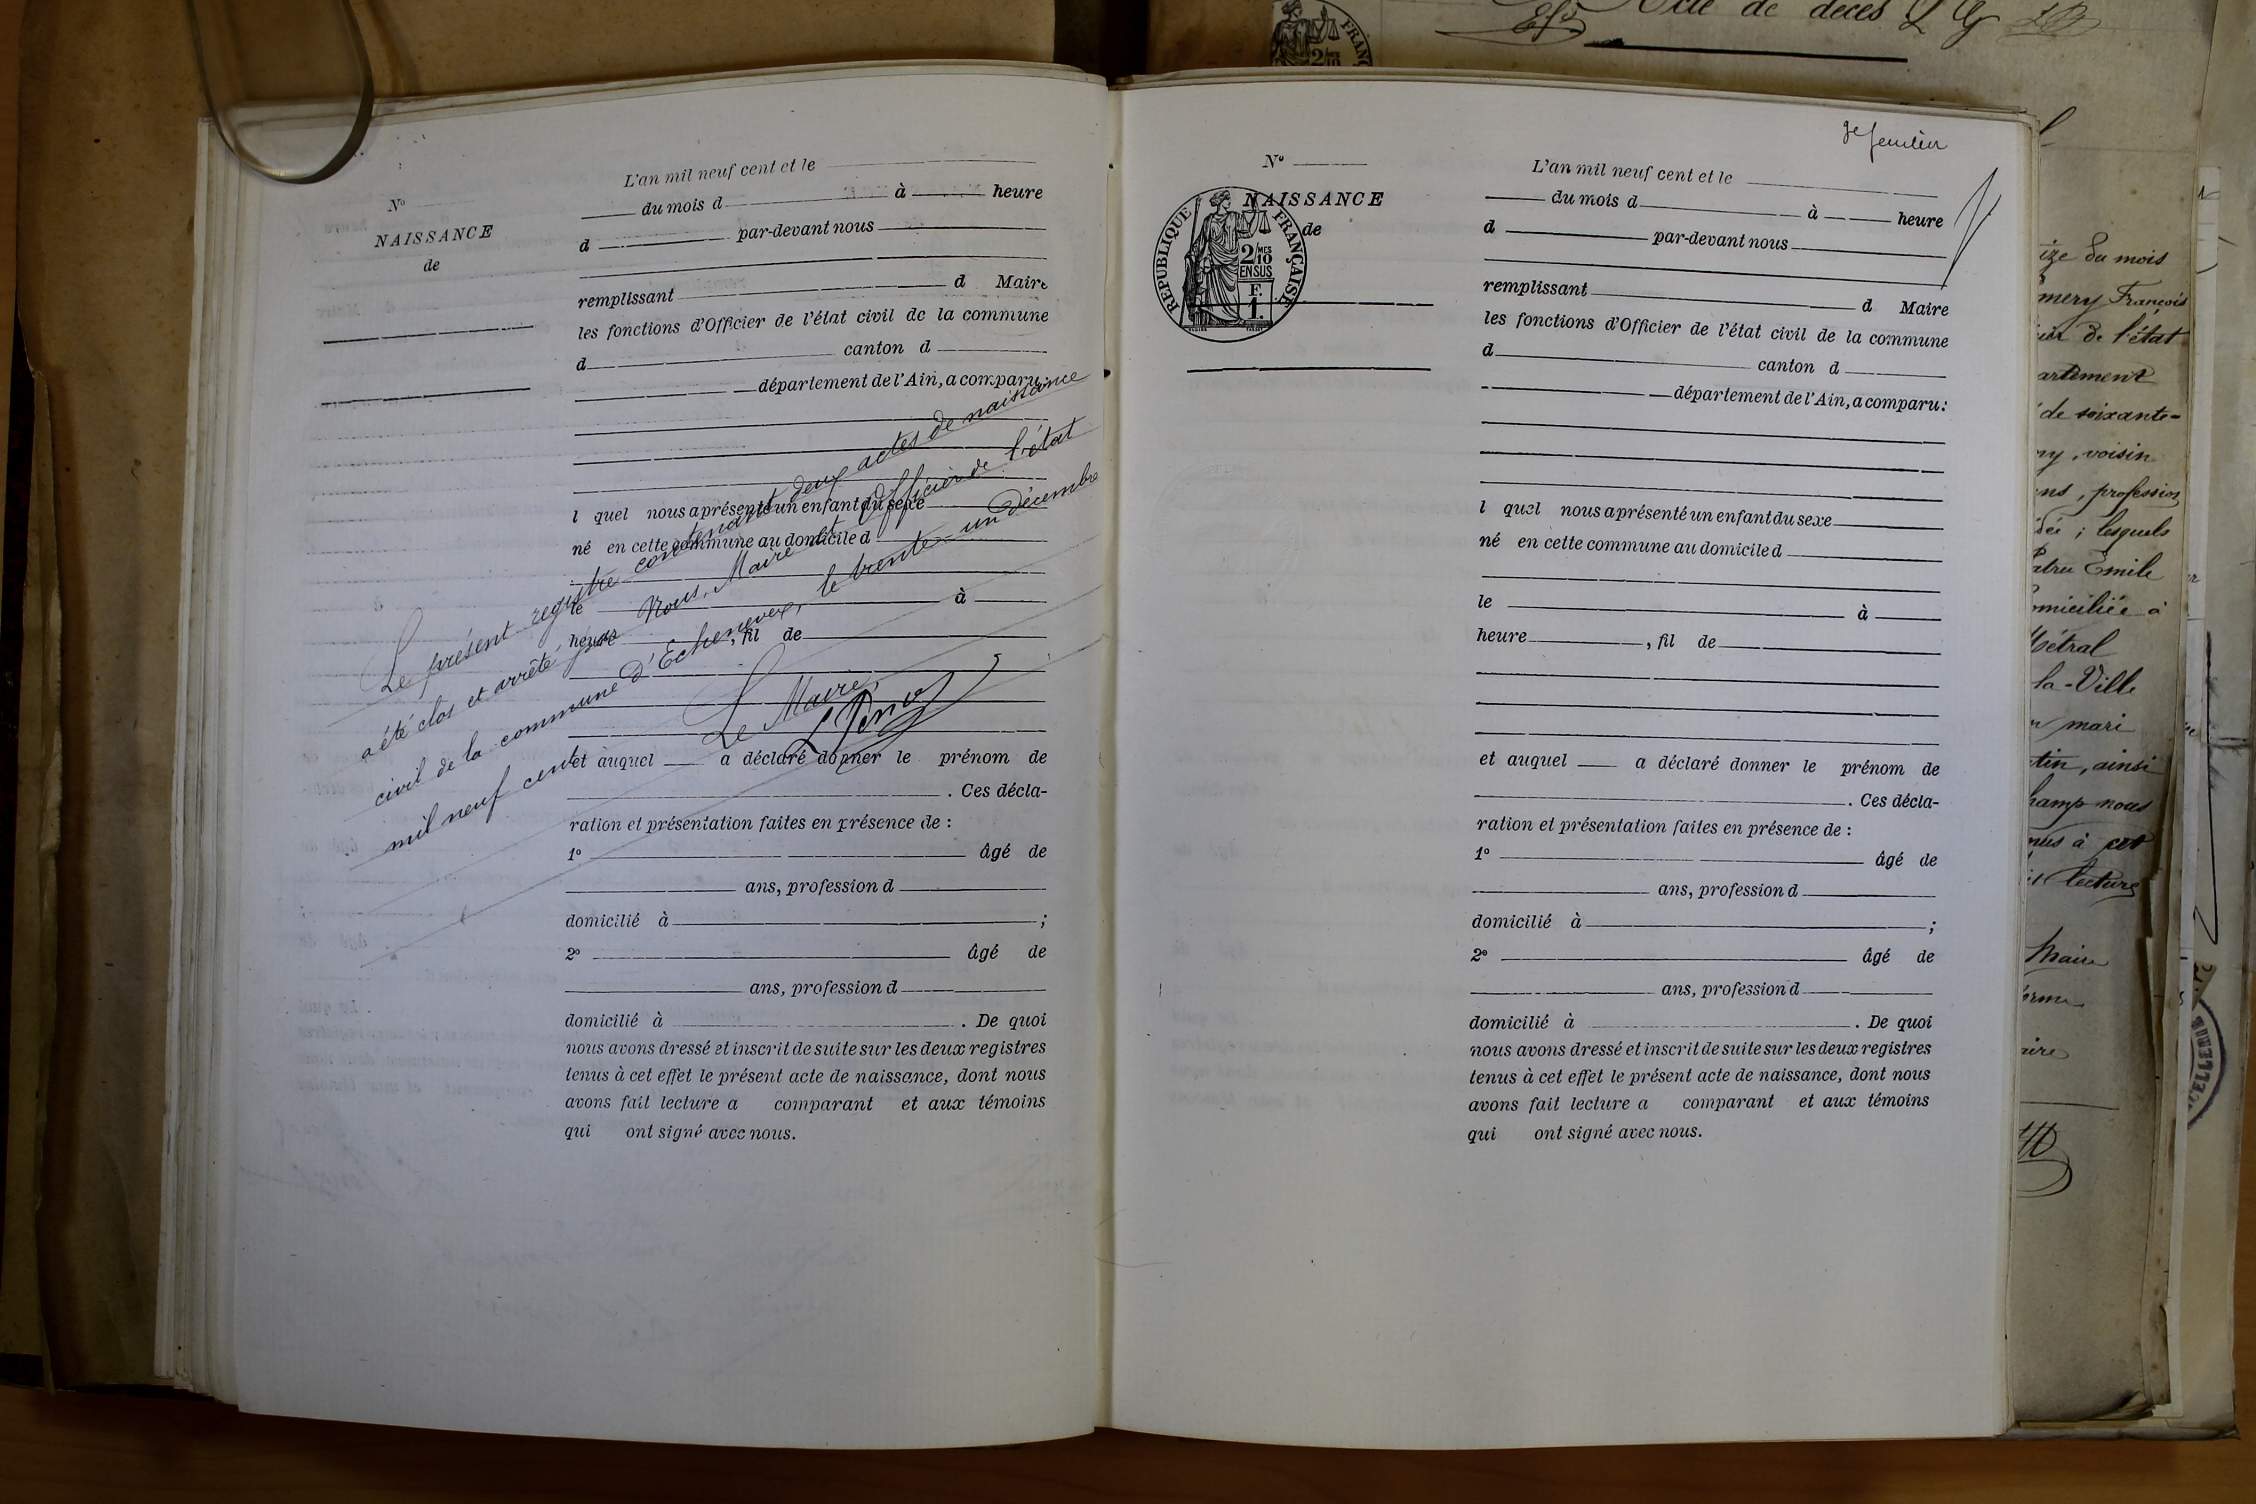 N°
NAISSANCE
de
L'an mil neuf cent et le
du mois d à heure
d par-devant nous
remplissant d Maire
les fonctions d'Officier de l'état civil de la commune
d canton d
département de l'Ain, a comparu:
l quel nous a présenté un enfant du sexe
né en cette commune au domicile d
le à
heure , fil de
et auquel a déclaré donner le prénom de
. Ces décla-
ration et présentation faites en présence de :
1° âgé de
ans, profession d
domicilié à ;
2° âgé de
ans, profession d
domicilié à . De quoi
nous avons dressé et inscrit de suite sur les deux registres
tenus à cet effet le présent acte de naissance, dont nous
avons fait lecture a comparant et aux témoins
qui ont signé avec nous.
Le présent registre contenant deux actes de naissance
a été clos et arrêté par Nous, Maire et Officier de l'état
civil de la commune d'Echenevex, le trente-un décembre
mil neuf cent
Le Maire,
3e feuillet
N°
NAISSANCE
de
RÉPUBLIQUE FRANÇAISE
2/10 MES
EN SUS
F.
1.
L'an mil neuf cent et le
du mois d à heure
d par-devant nous
remplissant d Maire
les fonctions d'Officier de l'état civil de la commune
d canton d
département de l'Ain, a comparu:
l quel nous a présenté un enfant du sexe
né en cette commune au domicile d
le à
heure , fil de
et auquel a déclaré donner le prénom de
. Ces décla-
ration et présentation faites en présence de :
1° âgé de
ans, profession d
domicilié à ;
2° âgé de
ans, profession d
domicilié à . De quoi
nous avons dressé et inscrit de suite sur les deux registres
tenus à cet effet le présent acte de naissance, dont nous
avons fait lecture a comparant et aux témoins
qui ont signé avec nous.
Acte de décès
du mois
François
de l'état
de soixante-
voisin
profession
; lesquels
Emile
domiciliée à
Métral
la-Ville
mari
ainsi
nous
à cet
lecture
Maire